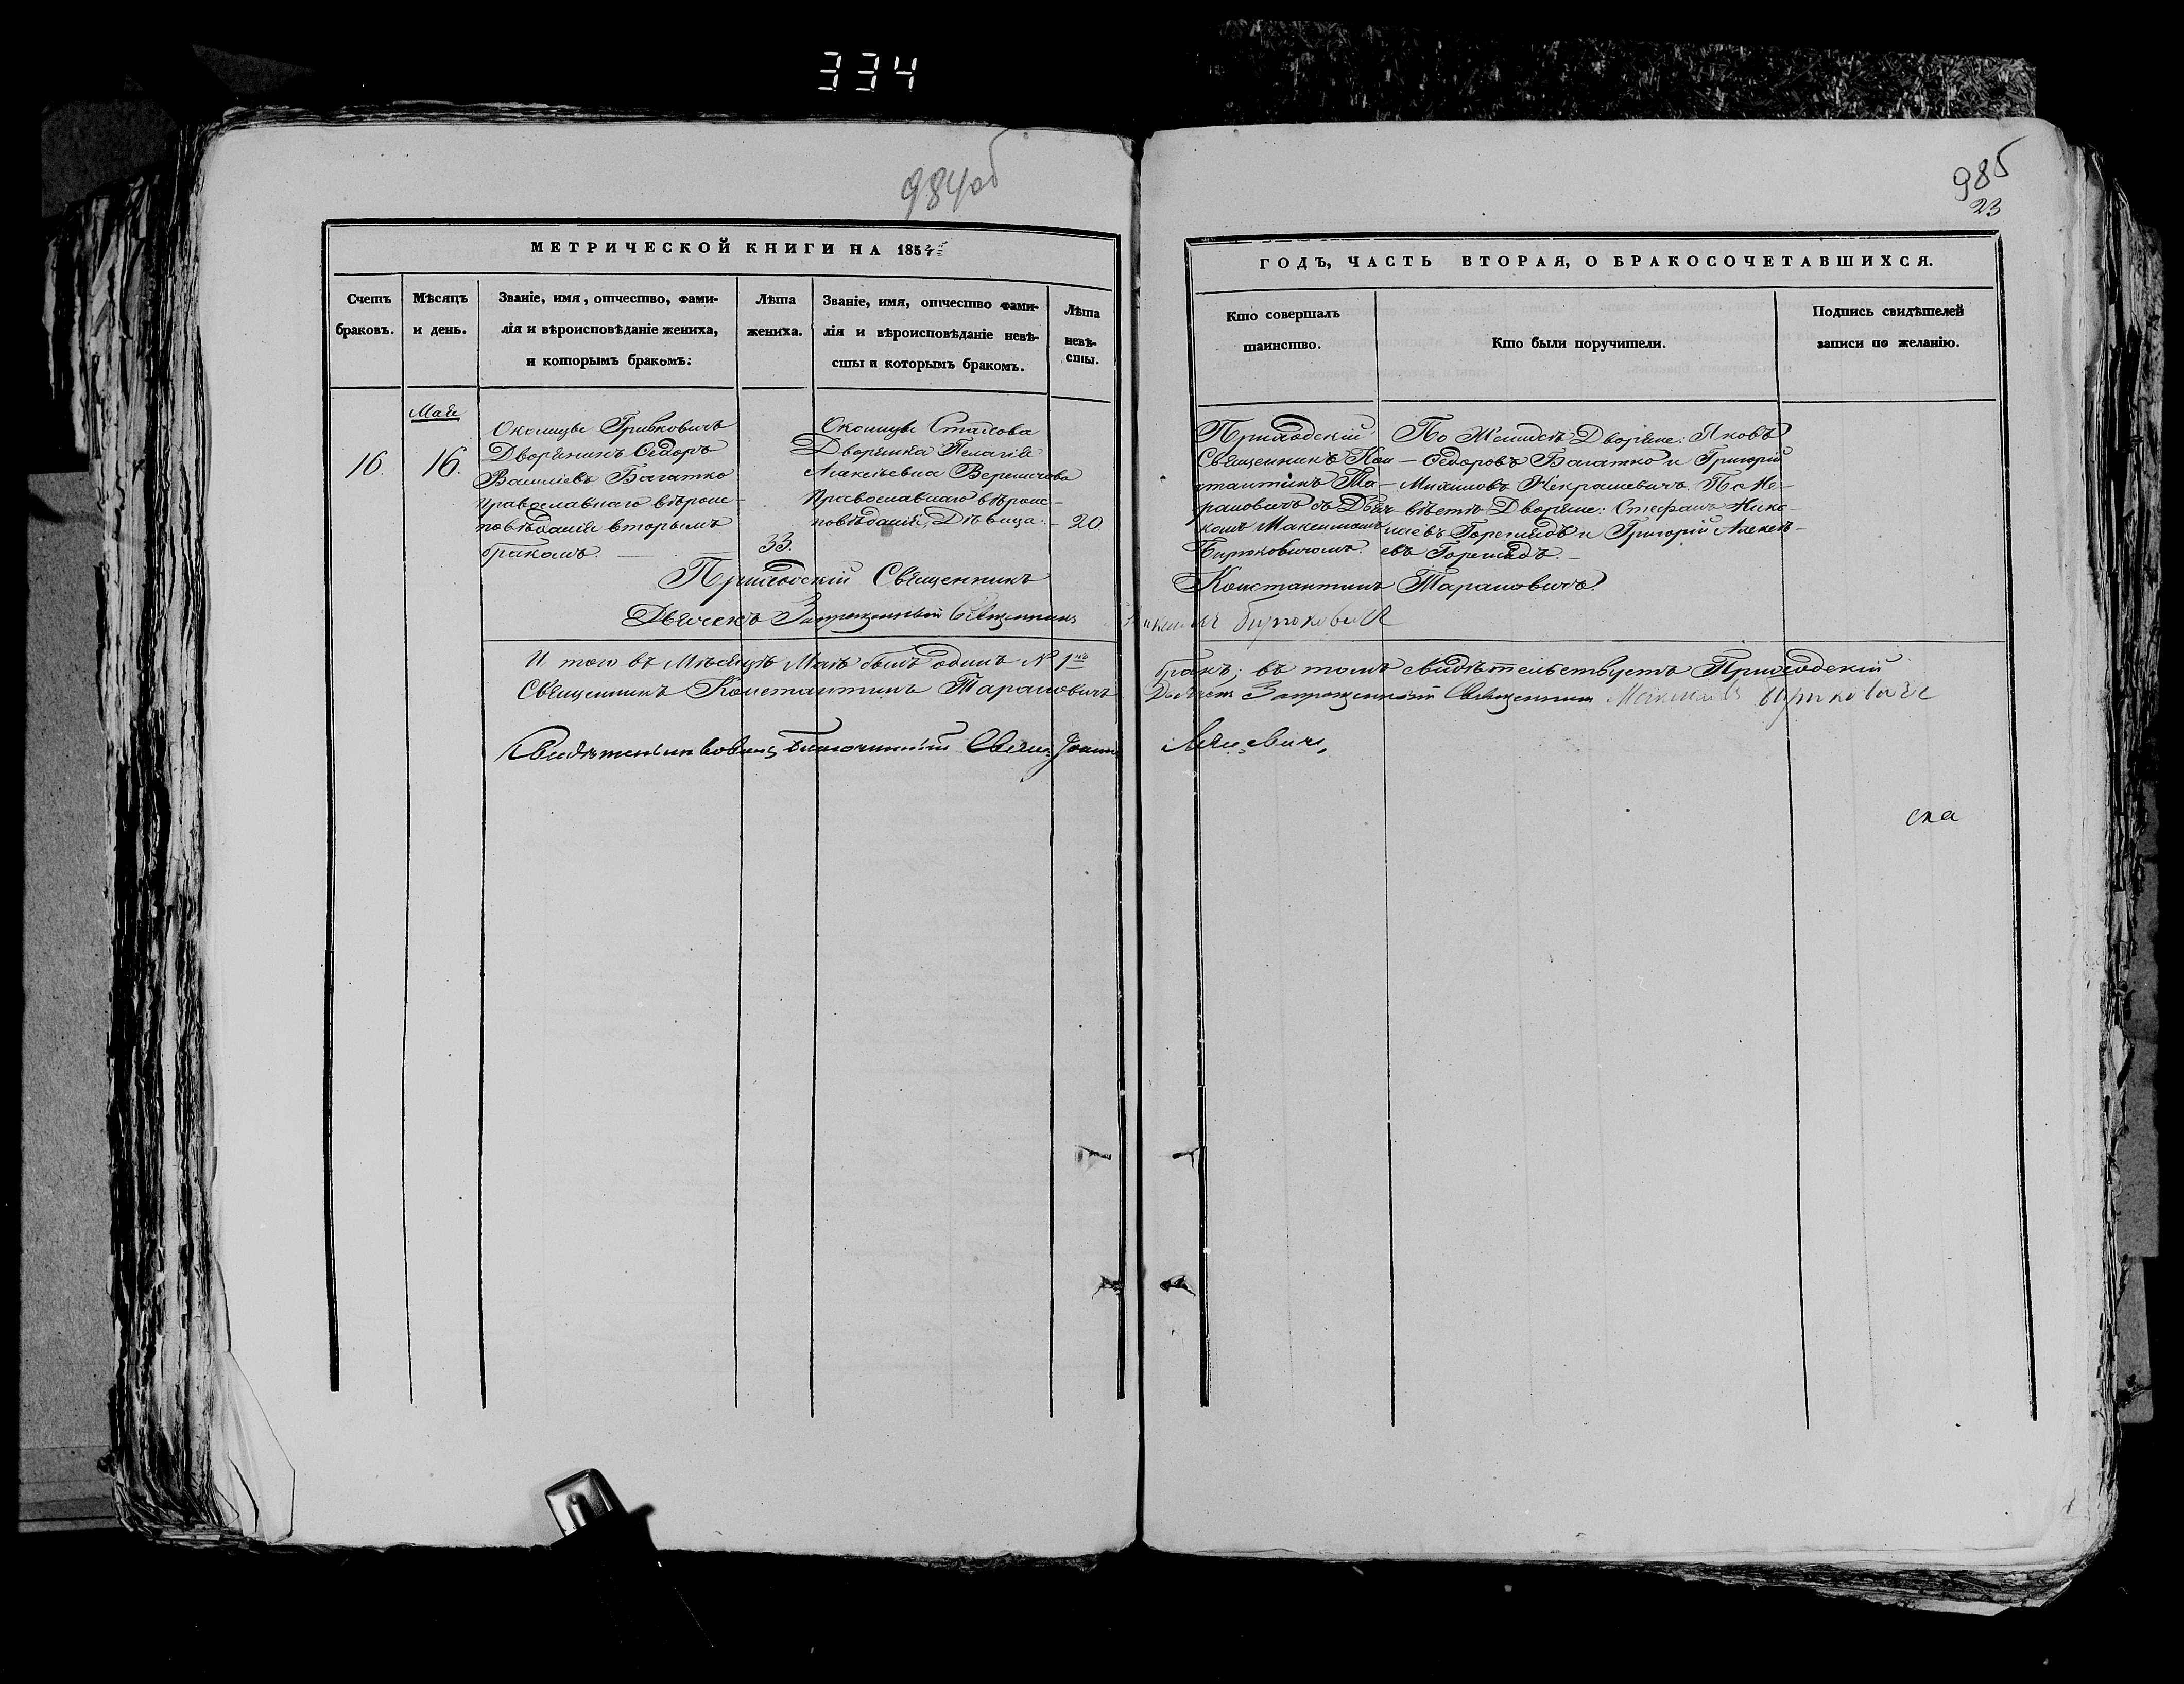 334
984об
985
23
МЕТРИЧЕСКОЙ КНИГИ НА 1854
ГОДЪ, ЧАСТЬ ВТОРАЯ, О БРАКОСОЧЕТАВШИХСЯ.
Счетъ
браковъ.
Мѣсяцъ
и день.
Званіе, имя, отчество, фами-
лія и вѣроисповѣданіе жениха,
и которымъ бракомъ.
Лѣта
жениха.
Званіе, имя, отчество фами-
лія и вѣроисповѣданіе невѣ-
сты и которымъ бракомъ.
Лѣта
невѣ-
сты.
Кто совершалъ
таинство.
Кто были поручители.
Подпись свидѣтелей
записи по желанію.
Мая
16.
16.
Околицы Гривковичъ
Дворянинъ Ѳедоръ
Василіевъ Багатко
православнаго вѣроис-
повѣданія вторымъ
бракомъ.
33.
Околицы Стахова
Дворянка Пелагія
Алексѣевна Вереничова
православнаго вѣроис-
повѣданія, Дѣвица.
20.
Приходскій
Священникъ Кон-
стантинъ Та-
рановичъ съ Дьяч-
комъ Максимомъ
Бирюковичомъ.
По Женихѣ Дворяне: Яковъ
Ѳедоровъ Багатко и Григорій
Михаиловъ Некрашевичъ. По Не-
вѣстѣ Дворяне: Стефанъ Нико-
лаевъ Горегляд и Григорій Алексѣ-
евъ Горегляд.
Приходскій Священникъ Константинъ Тарановичъ.
Дьячекъ Запрещенный Священникъ Максимъ Бирюковичъ
И того въ Мѣсяцѣ Маѣ былъ одинъ № 1й бракъ; въ томъ свидѣтельствуетъ Приходскій
Священникъ Константинъ Тарановичъ Дьячекъ Запрещенный Священникъ Максимъ Бирюковичъ
Свидѣтельствовалъ Благочинный Свящ. Іоаннъ
ска